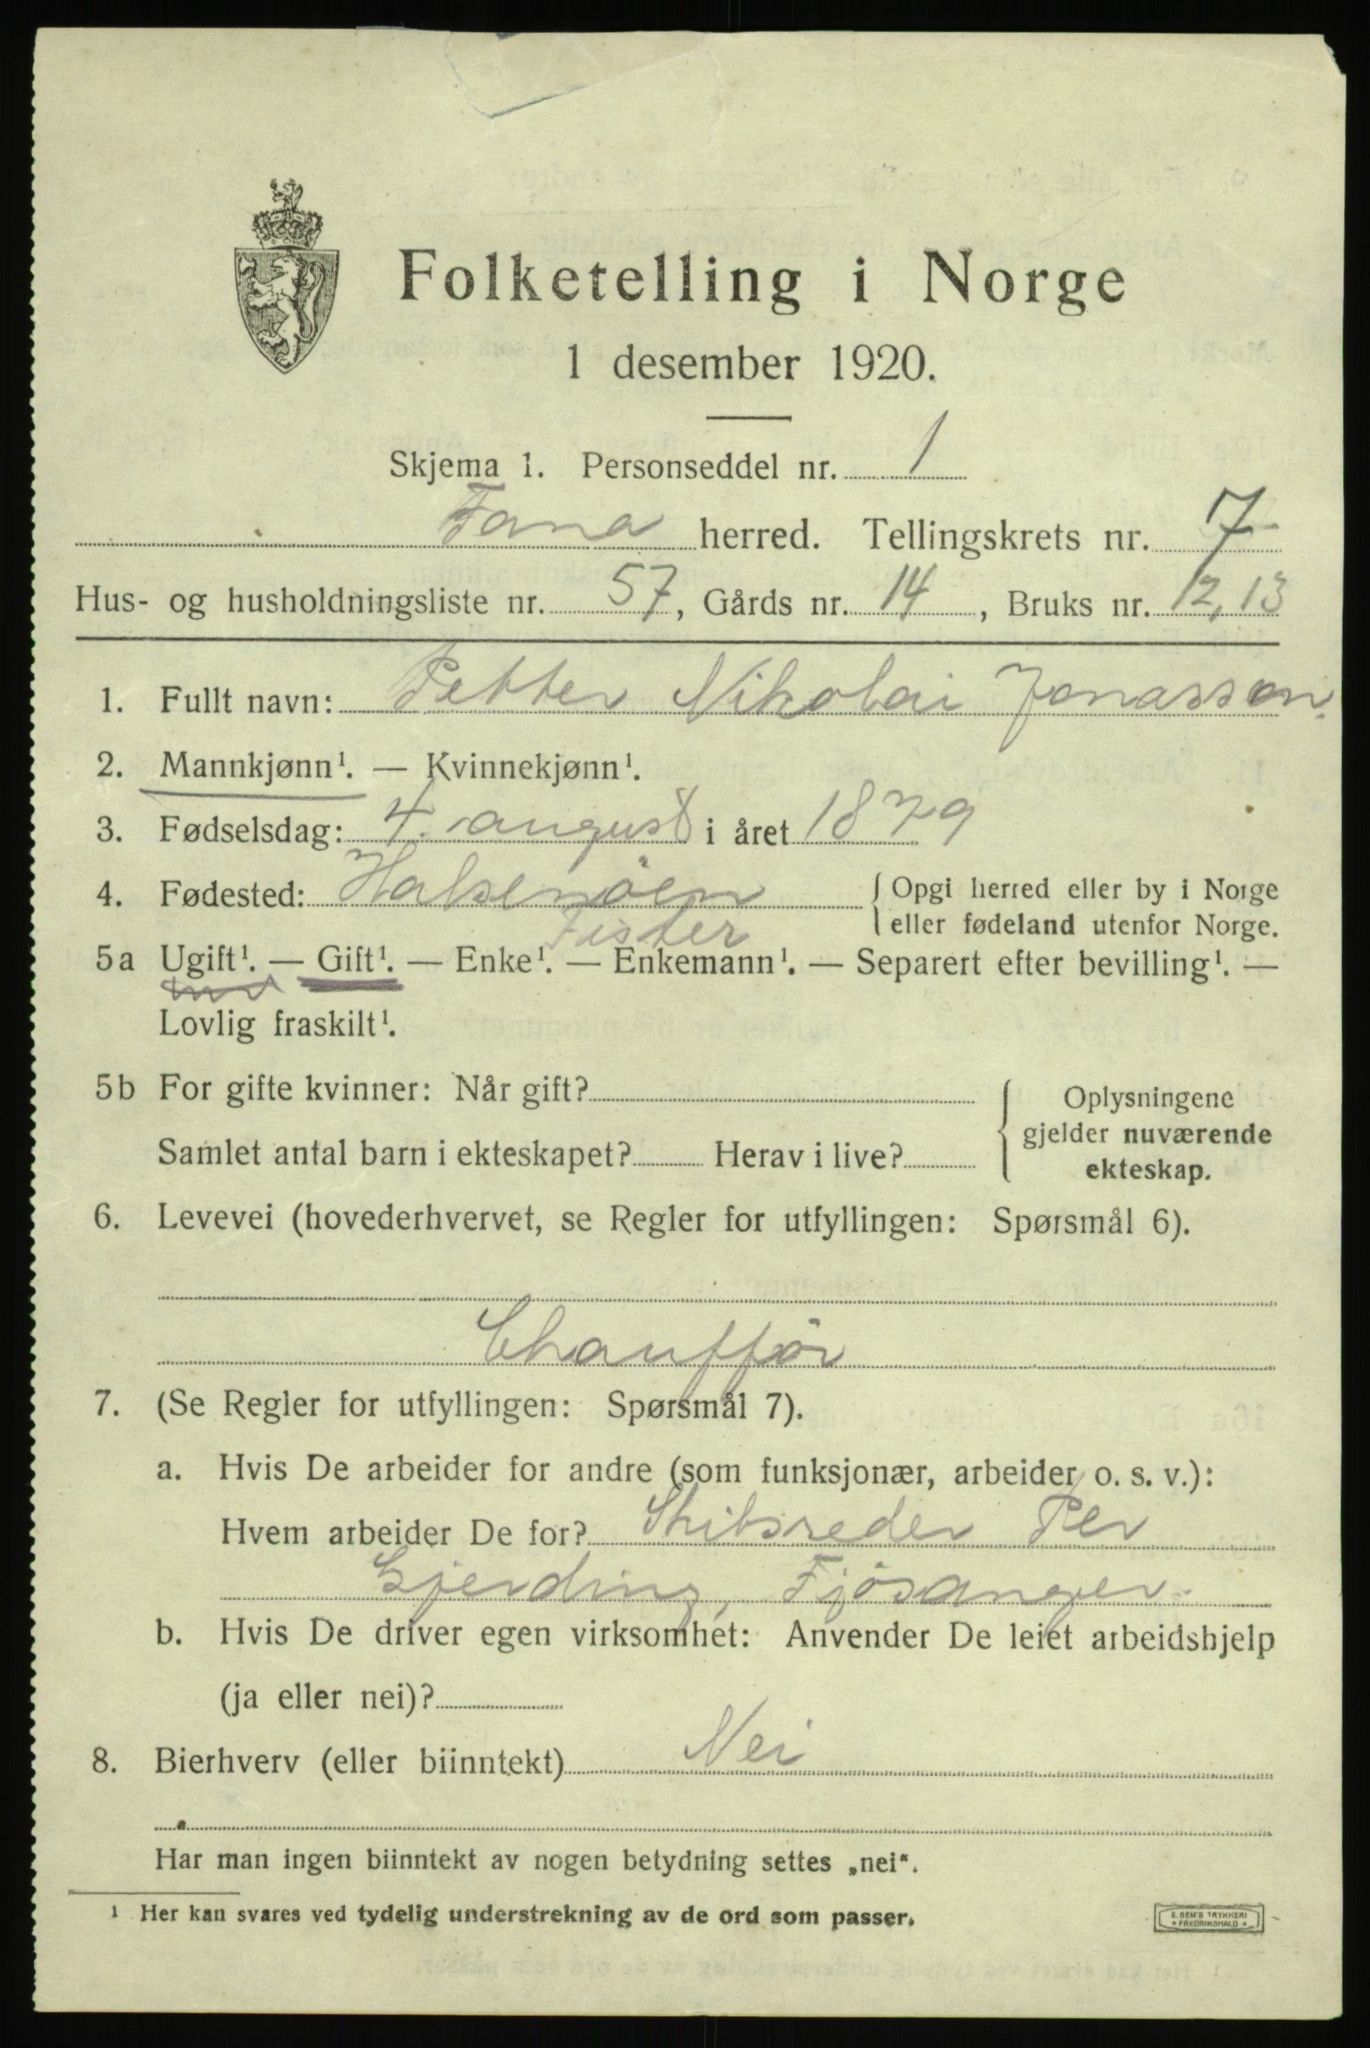 Folketelling i Norge
1 desember 1920.
Skjema 1. Personseddel nr. 1
Fana herred. Tellingskrets nr. 7
Hus- og husholdningsliste nr. 57, Gårds nr. 14, Bruks nr. 12, 13
1. Fullt navn: Petter Nikolai Jonassen.
2. Mannkjønn¹. — Kvinnekjønn¹.
3. Fødselsdag: 4. august i året 1879
4. Fødested: Halsenöen {Opgi herred eller by i Norge
eller fødeland utenfor Norge.
Fister
5a Ugift¹. — Gift¹. — Enke¹. — Enkemann¹. — Separert efter bevilling¹. —
Lovlig fraskilt¹.
5b For gifte kvinner: Når gift?
Samlet antal barn i ekteskapet? Herav i live?
{Oplysningene
gjelder nuværende
ekteskap.
6. Levevei (hovederhvervet, se Regler for utfyllingen: Spørsmål 6).
Chaufför
7. (Se Regler for utfyllingen: Spørsmål 7).
a. Hvis De arbeider for andre (som funksjonær, arbeider o. s. v.):
Hvem arbeider De for? Skibsreder Per
Gjerding, Fjösanger.
b. Hvis De driver egen virksomhet: Anvender De leiet arbeidshjelp
(ja eller nei)?
8. Bierhverv (eller biinntekt) Nei
Har man ingen biinntekt av nogen betydning settes „nei“.
¹ Her kan svares ved tydelig understrekning av de ord som passer.
E. SEM'S TRYKKERI
* FREDRIKSHALD *